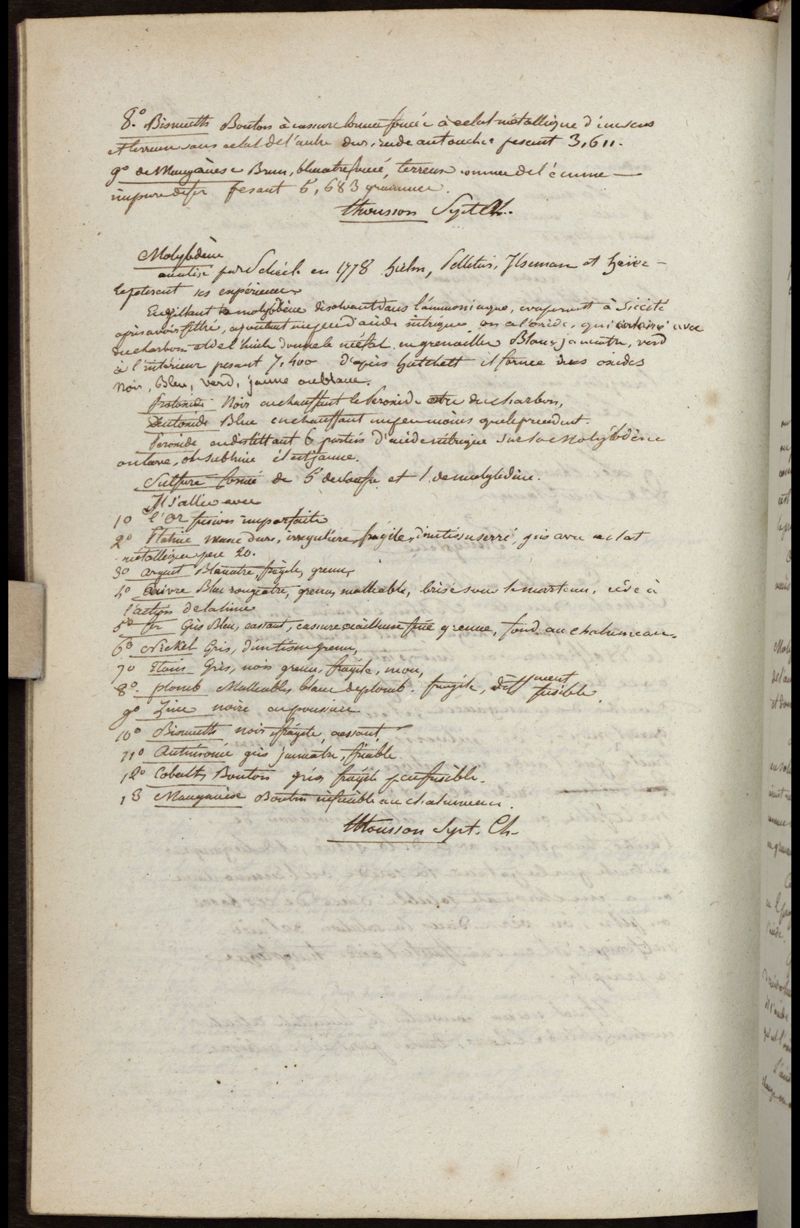 8.o Bismuth Bouton à cassure brune foncée à eclat métallique d'un sens
et terreux sans eclat de l'autre dur, rude au toucher pesant 3,611.
9o de Manganèse Brun, bleuatre foncé, terreux comme de l'écume
impure de fer pesant 6,683 grammes.
Thomson Syst. Ch.
Molybdène
analisé par Schéele en 1778 Hielm, Pelletier, Ilseman et Heier
repeterent ses expériences
En grillant le molybdène dissolvant dans l'ammoniaque, evaporant à siccité
après avoir filtré, ajoutant un peu d'acide nitrique on a l'oxide, qui avec
du charbon et de l'huile donne le métal, en grenailles Blanc jaunatre, verd
à l'intérieur pesant 7,400 D'après Hatchett il forme des oxides
Noir, Bleu, verd, jaune ou blanc.
Protoxide Noir en chauffant le Peroxide du charbon,
Deutoxide Bleu en chauffant un peu moins que le précedent.
Peroxide en distillant 6 parties d'acide nitrique sur le Molybdène
on lave, on sublime il est jaune.
Sulfure formé de 6 de soufre et 1 de molybdène.
Il s'allie avec
1o l'Or fusion imparfaite
2o Platine masse dure, irreguliere, fragile, d'un tissu serré, gris avec eclat
metallique pese 20.
3o argent Bleuatre, fragile, grenu,
4o Cuivre Bleu rougeatre, grenu, malleable, brisé sous le marteau, cède à
l'action de la lime
5o fer Gris Bleu, cassant, cassure ecailleuse fine grenue, fond au chalumeau.
6o Nickel Gris, d'un tissu grenu,
7o Etain Gris, noir grenu, fragile, mou,
8o. plomb Malleable, blanc de plomb. fragile, difficilement fusible.
9o Zinc noire en poussiere
10o Bismuth noir fragile, cassant
11o Antimoine gris jaunatre, friable
12o Cobalt Bouton gris fragile peu fusible.
13 Manganèse Bouton infusible au chalumeau.
Thomson Syst. Ch.